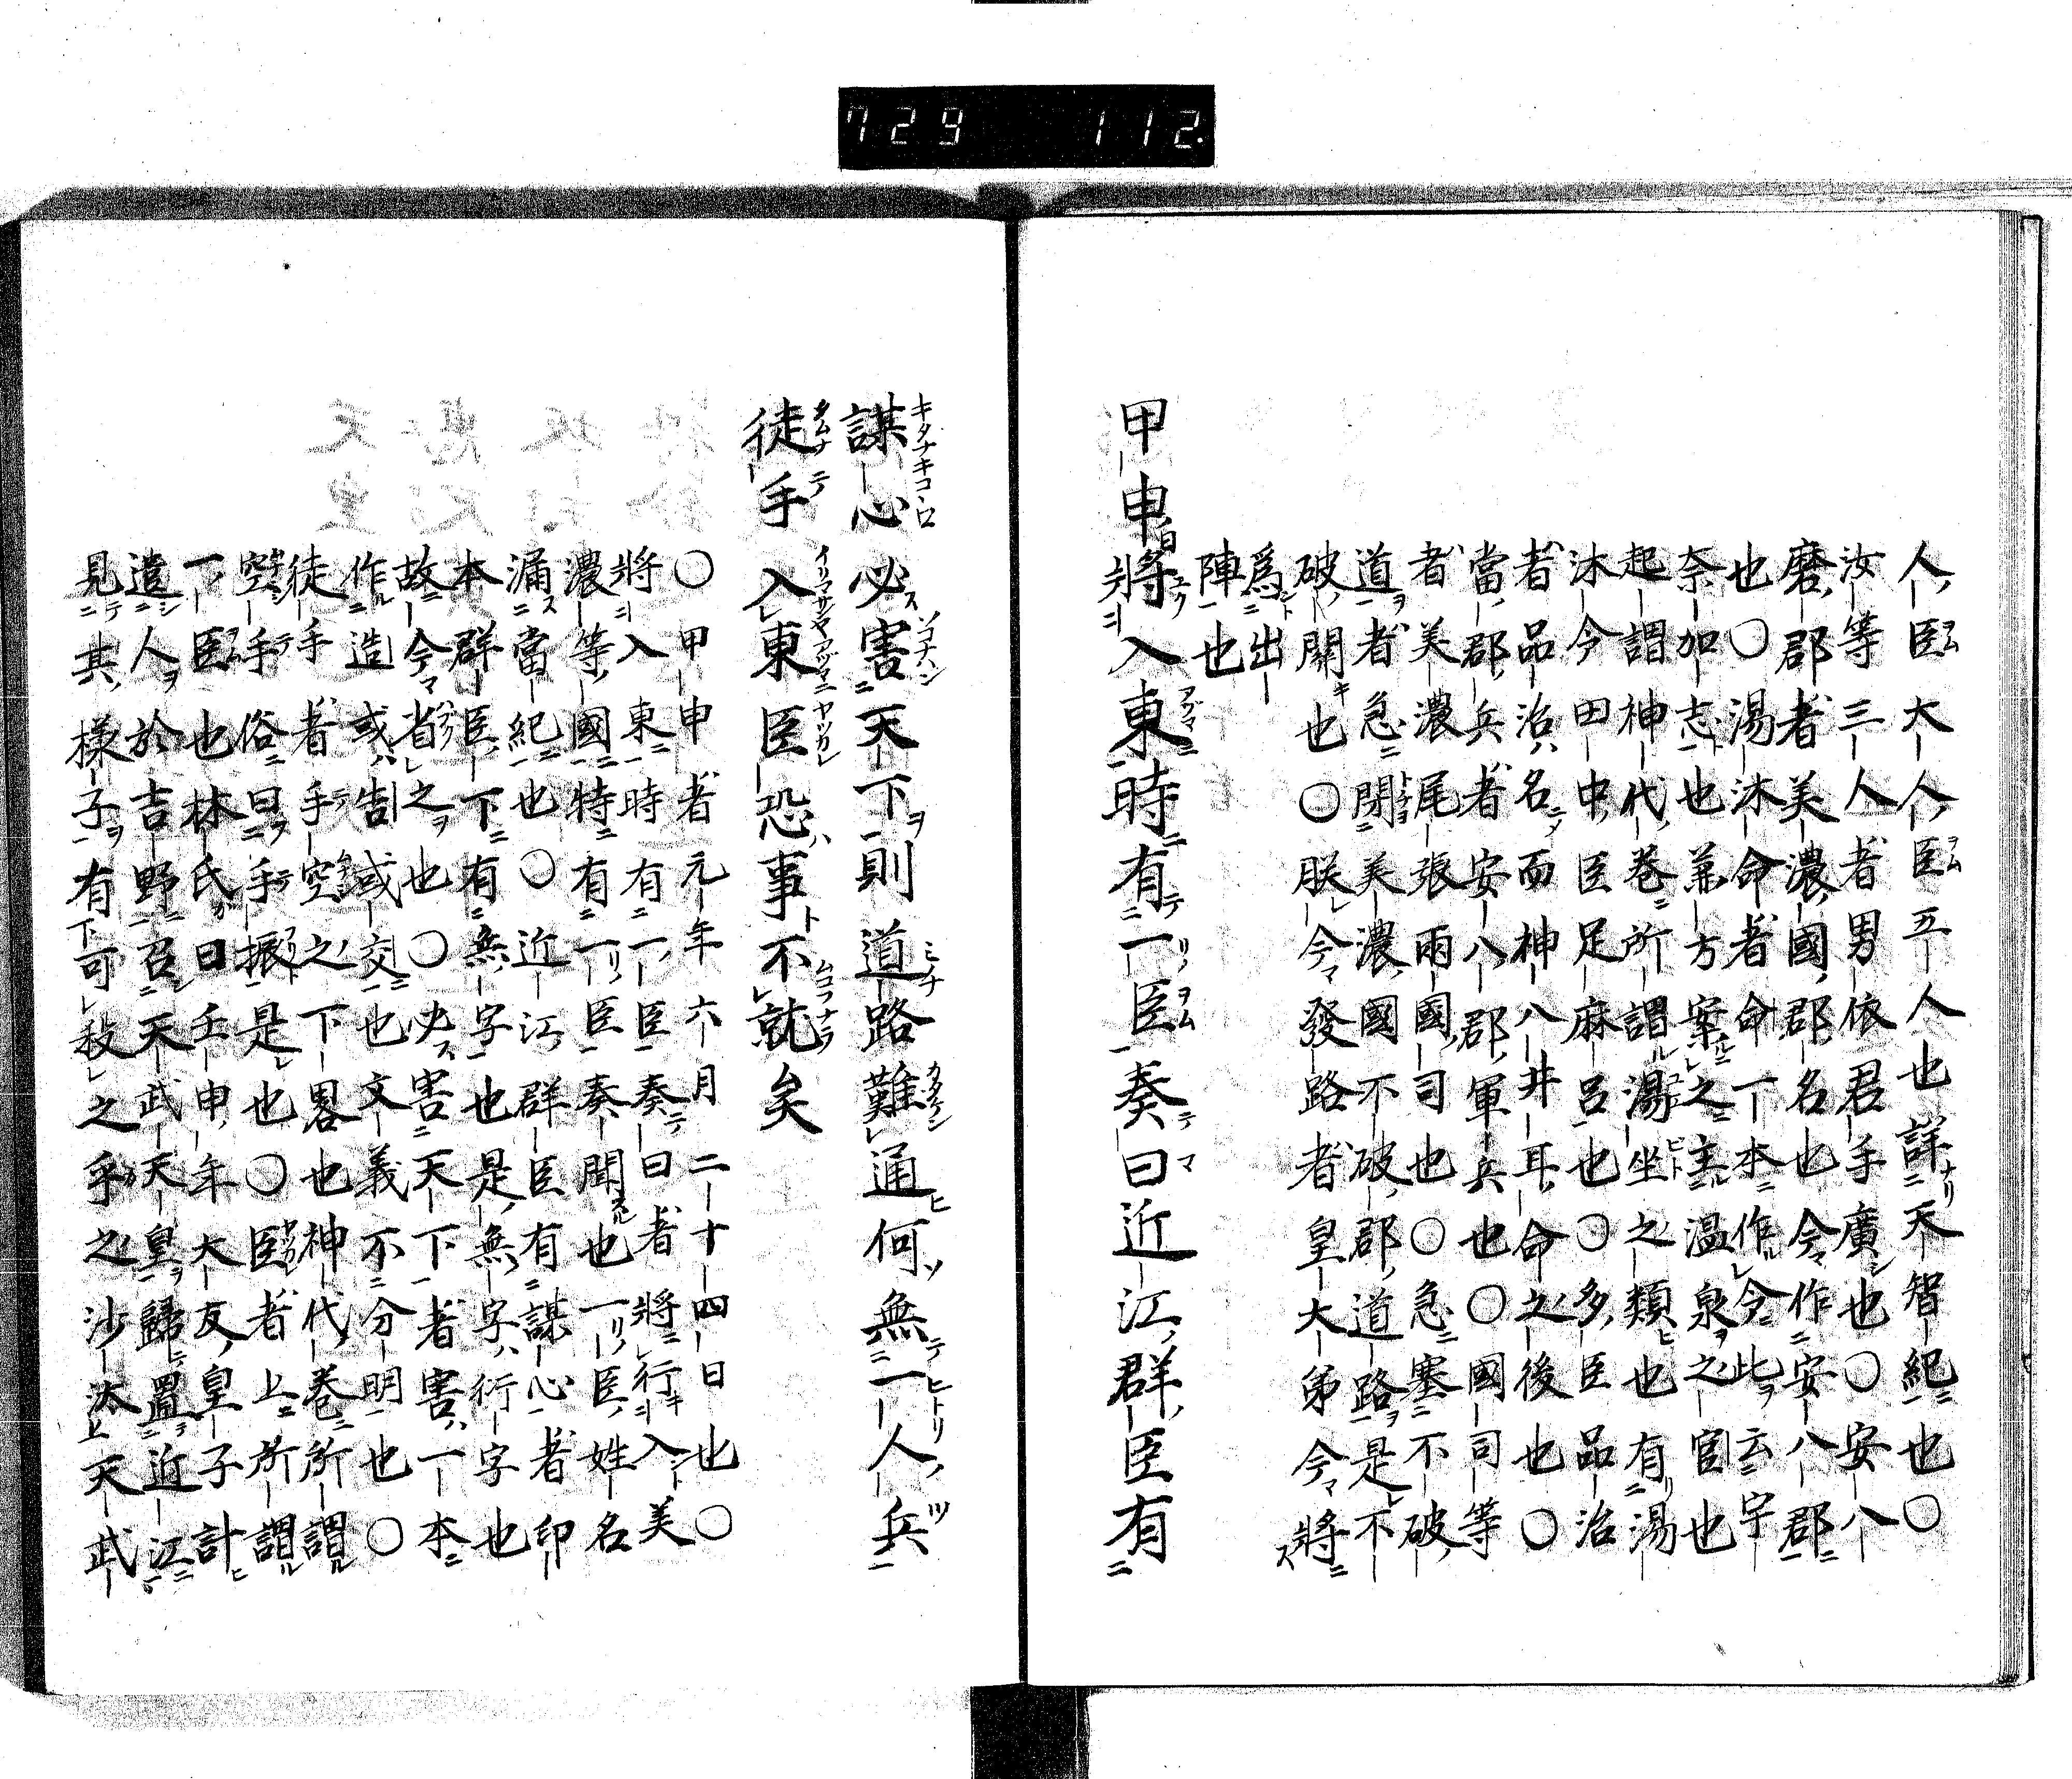 729 112.
人臣大人臣五人也詳天智紀也〇
汝等三人者男依君手廣也〇安八
磨郡者美濃國郡名也今作安八郡
也〇湯沐命者命一本作令此云宇
奈加志也兼方案之主温泉之官也
起謂神代巻所謂湯坐之類也有湯
沐今田中臣足麻呂也〇多臣品治
者品治名而神八井耳命之後也〇
當郡兵者安八郡軍兵也〇國司等
者美濃尾張兩國司也〇急塞不破
道者急閉美濃國不破郡道路是不
破關也〇朕今發路者皇大弟今將
爲出
陣也
甲申將入東時有一臣奏曰近江群臣有
謀心必害天下則道路難通何無一人兵
徒手入東臣恐事不就矣
〇甲申者元年六月二十四日也〇
將入東時有一臣奏曰者將行入美
濃等國時有一臣奏聞也一臣姓名
漏當紀也〇近江群臣有謀心者印
本群臣下有無字也是無字衍字也
故今省之也〇必害天下者害一本
作造或告或交也文義不分明也〇
徒手者手空之下畧也神代巻所謂
空手俗曰手振是也〇臣者上所謂
一臣也林氏曰壬申年大友皇子計
遣人於吉野召天武天皇歸置近江
見其樣子有可殺之乎之沙汰上天武